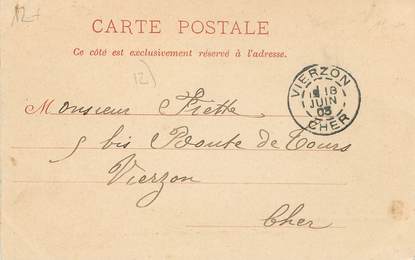 12
CARTE POSTALE
Ce côté est exclusivement réservé à l'adresse.
12)
VIERZON
18
JUIN
03
CHER
Monsieur Fiette
5 bis Route de Tours
Vierzon
Cher